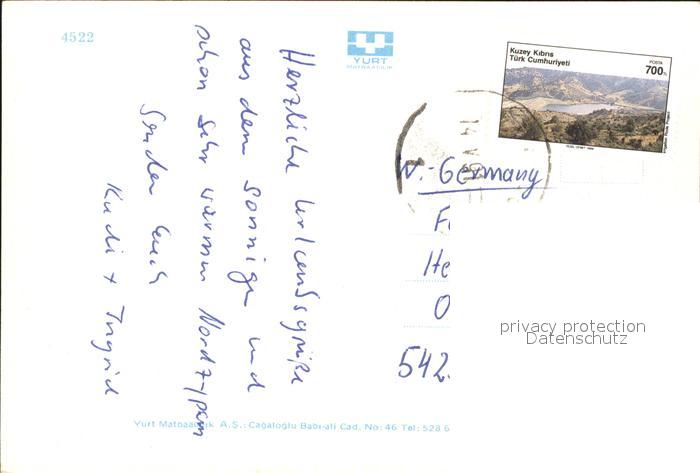 4522
YURT
MATBAACILIK
Kuzey Kıbrıs
Türk Cumhuriyeti
POSTA
700
Herzliche Urlaubsgrüße
aus dem sonnigen und
schon sehr warmen Nordzypern
Senden Euch
Rudi + Ingrid
W.-Germany
He
O
542
privacy protection
Datenschutz
Yurt Matbaacılık A.Ş.: Cağaloğlu Babı-ali Cad. No: 46 Tel: 528 6